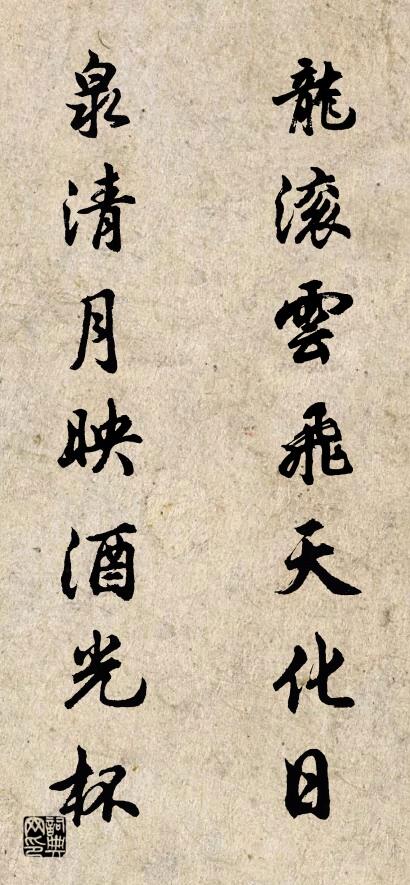 龍滚雲飛天化日
泉清月映酒光杯
詞典网印